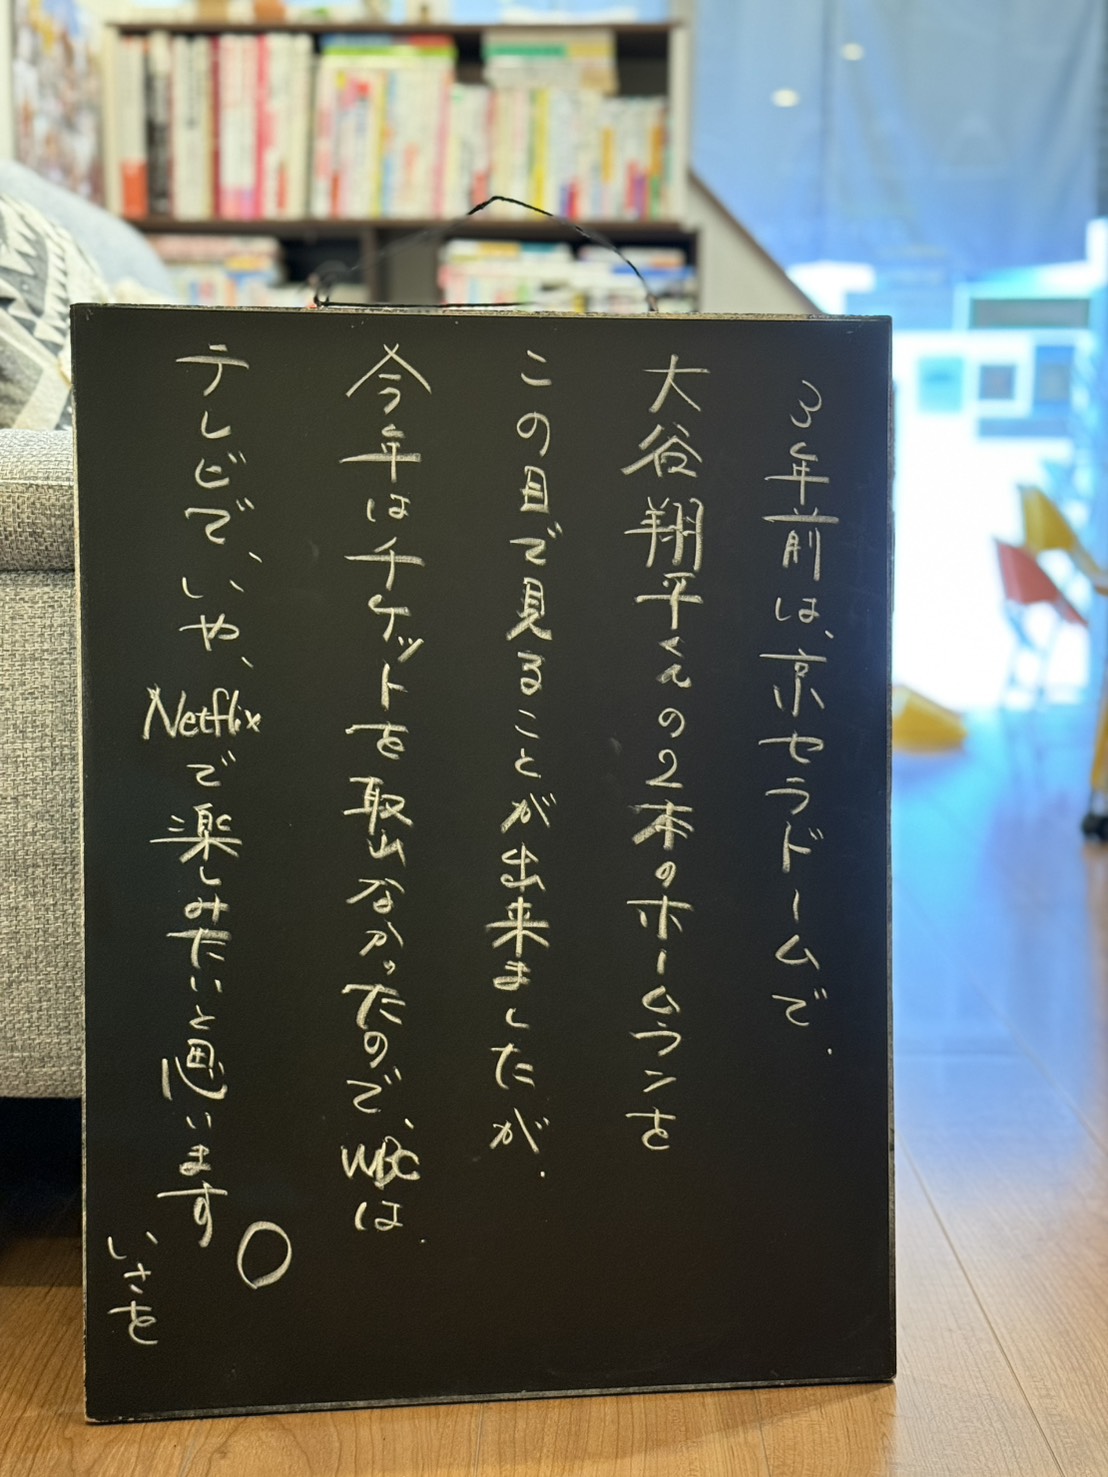 3年前は、京セラドームで、
大谷翔平くんの2本のホームランを
この目で見ることが出来ましたが、
今年はチケットを取れなかったので、WBCは、
テレビで、いや、Netflixで楽しみたいと思います。
いさを